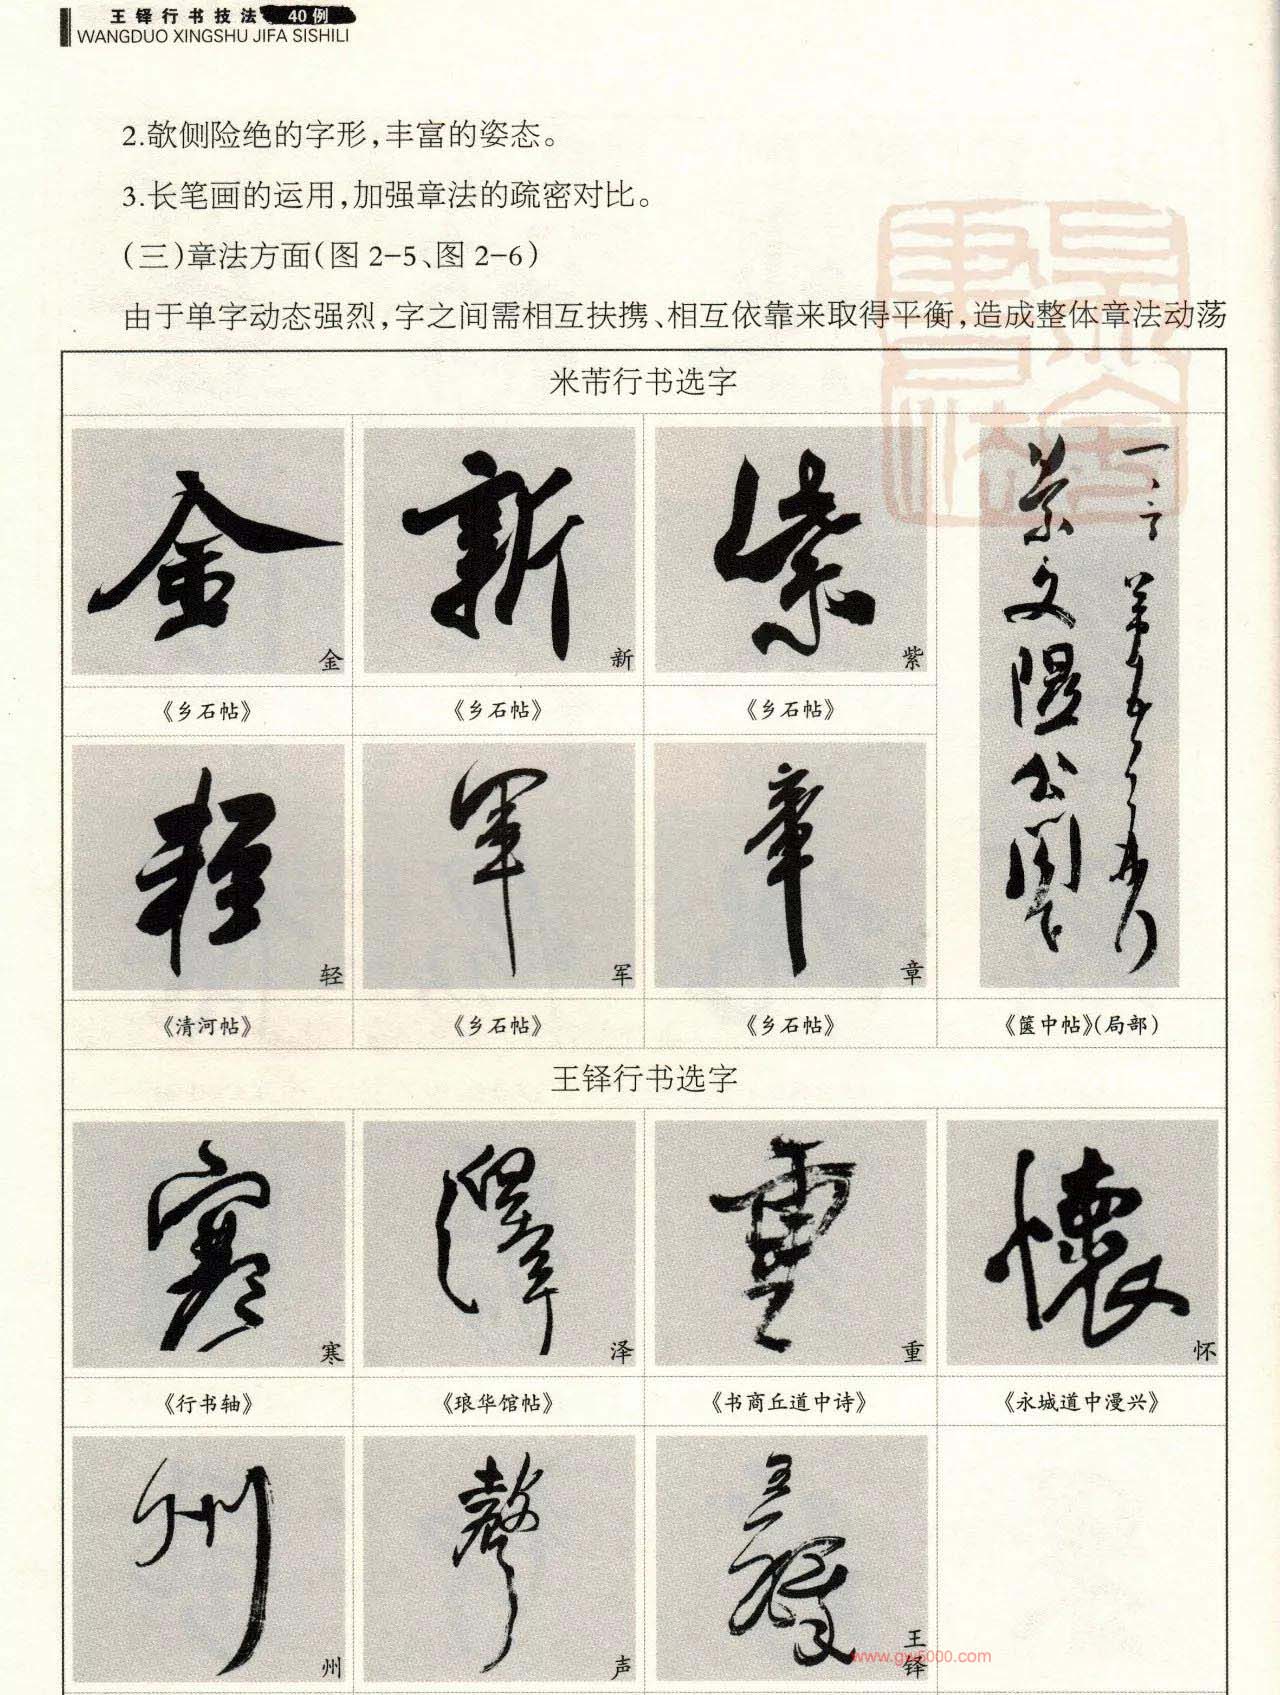 王铎行书技法 40例
WANGDUO XINGSHU JIFA SISHILI
2.欹侧险绝的字形,丰富的姿态。
3.长笔画的运用,加强章法的疏密对比。
(三)章法方面(图2-5、图2-6)
由于单字动态强烈,字之间需相互扶携、相互依靠来取得平衡,造成整体章法动荡
米芾行书选字
金
新
紫
《乡石帖》
《乡石帖》
《乡石帖》
轻
军
章
《清河帖》
《乡石帖》
《乡石帖》
《箧中帖》(局部)
王铎行书选字
寒
泽
重
怀
《行书轴》
《琅华馆帖》
《书商丘道中诗》
《永城道中漫兴》
州
声
王铎